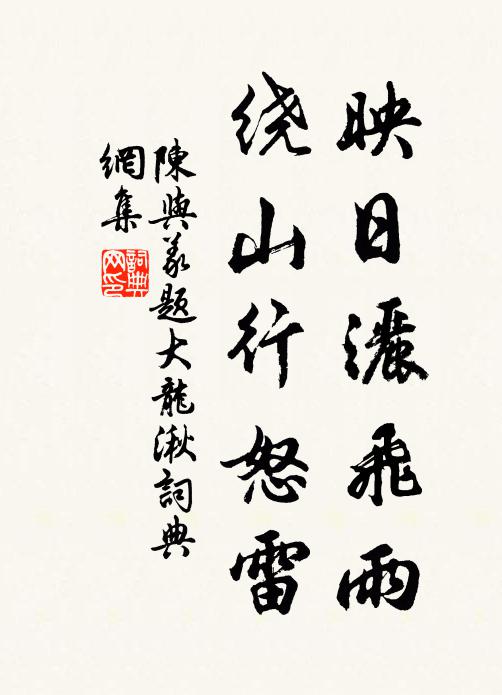 映日灑飛雨
绕山行怒雷
陳與義题大龍湫詞典
網集
詞典
网印